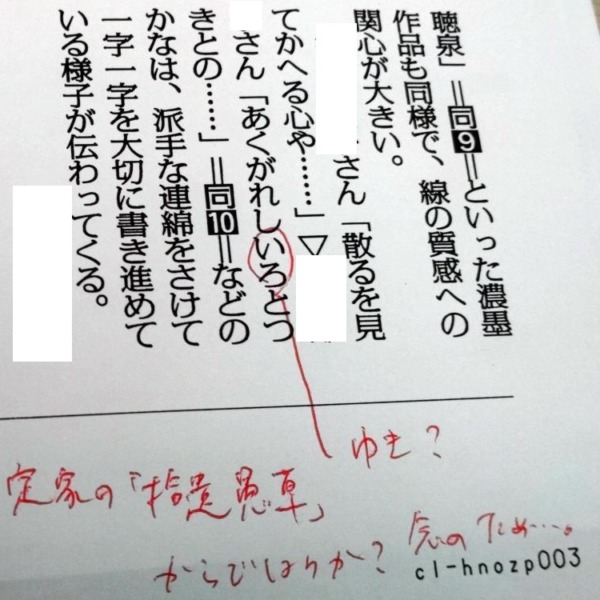 聴泉」＝同9＝といった濃墨
作品も同様で、線の質感への
関心が大きい。
さん「散るを見
てかへる心や……」▽
さん「あくがれしいろとつ
きとの……」＝同10＝などの
かなは、派手な連綿をさけて
一字一字を大切に書き進めて
いる様子が伝わってくる。
ゆき？
定家の「拾遺愚草」
からでしょうか？
念のため…。
cl-hnozp003